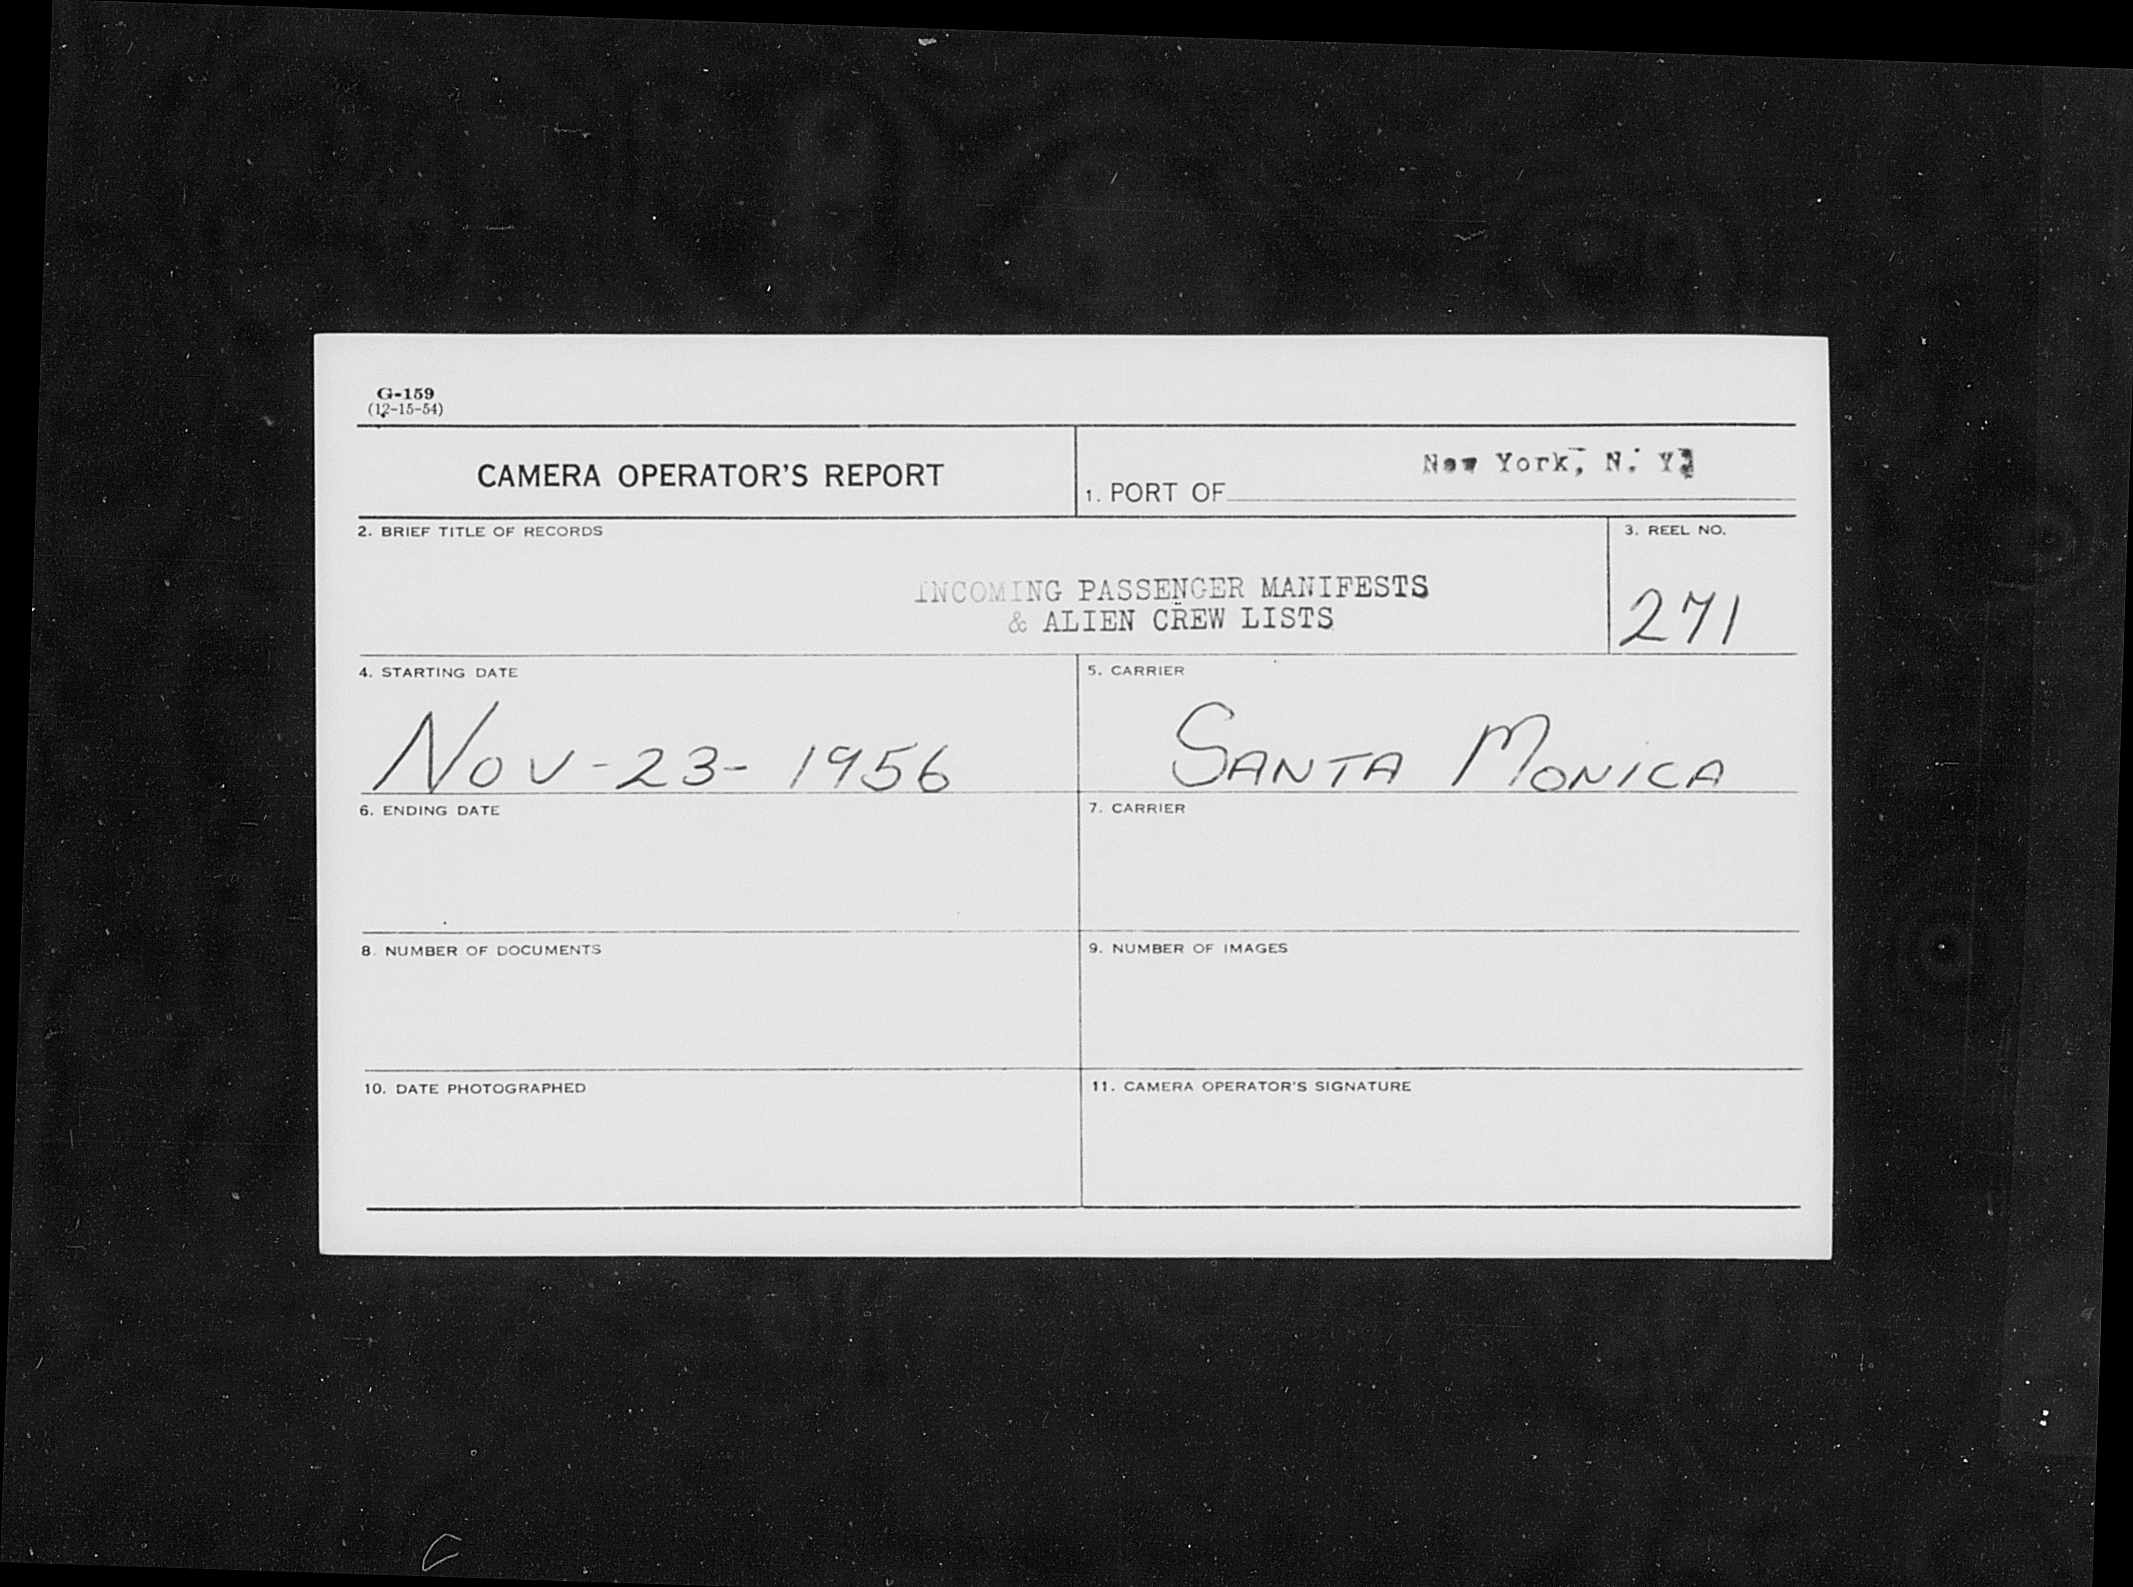 G-159
(12-15-54)
CAMERA OPERATOR'S REPORT
1. PORT OF New York, N. Y.
2. BRIEF TITLE OF RECORDS
INCOMING PASSENGER MANIFESTS
& ALIEN CREW LISTS
3. REEL NO.
271
4. STARTING DATE
Nov-23-1956
5. CARRIER
SANTA MONICA
6. ENDING DATE
7. CARRIER
8. NUMBER OF DOCUMENTS
9. NUMBER OF IMAGES
10. DATE PHOTOGRAPHED
11. CAMERA OPERATOR'S SIGNATURE